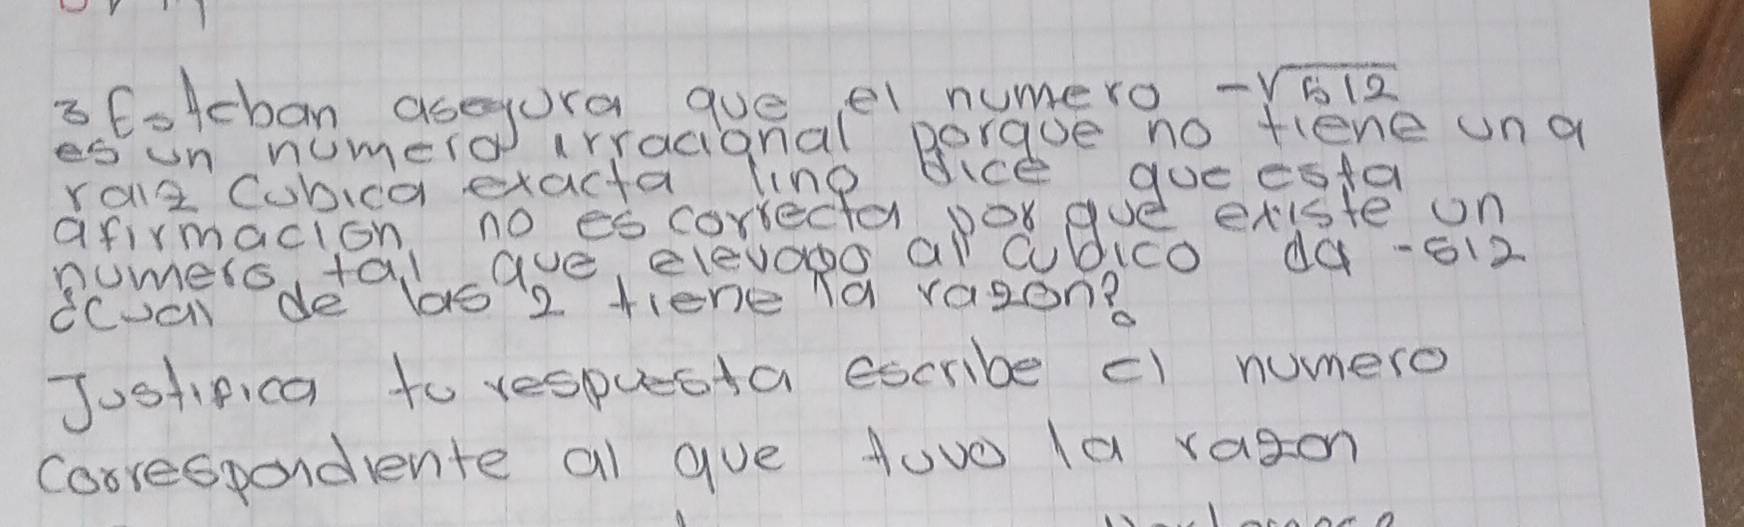 3 Esteban asegura que el numero -√512
es un numero irracional porque no tiene una
raiz cubica exacta lino dice que esta
afirmacion no es correcta por que existe un
numero tal que elevado al cubico da -512
¿Cual de las 2 tiene la razon?
Justifica tu respuesta escribe el numero
correspondiente al que tuvo la razon